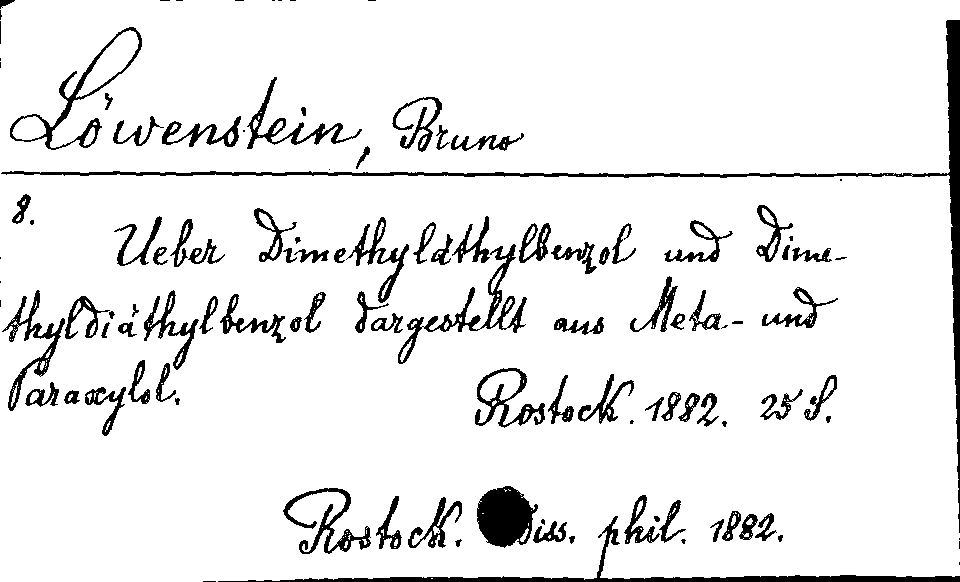 Löwenstein, Bruno
8.
Ueber Dimethyläthylbenzol und Dime-
thyldiäthylbenzol dargestellt aus Meta- und
Paraxylol.
Rostock. 1882. 25 S.
Rostock. Diss. phil. 1882.